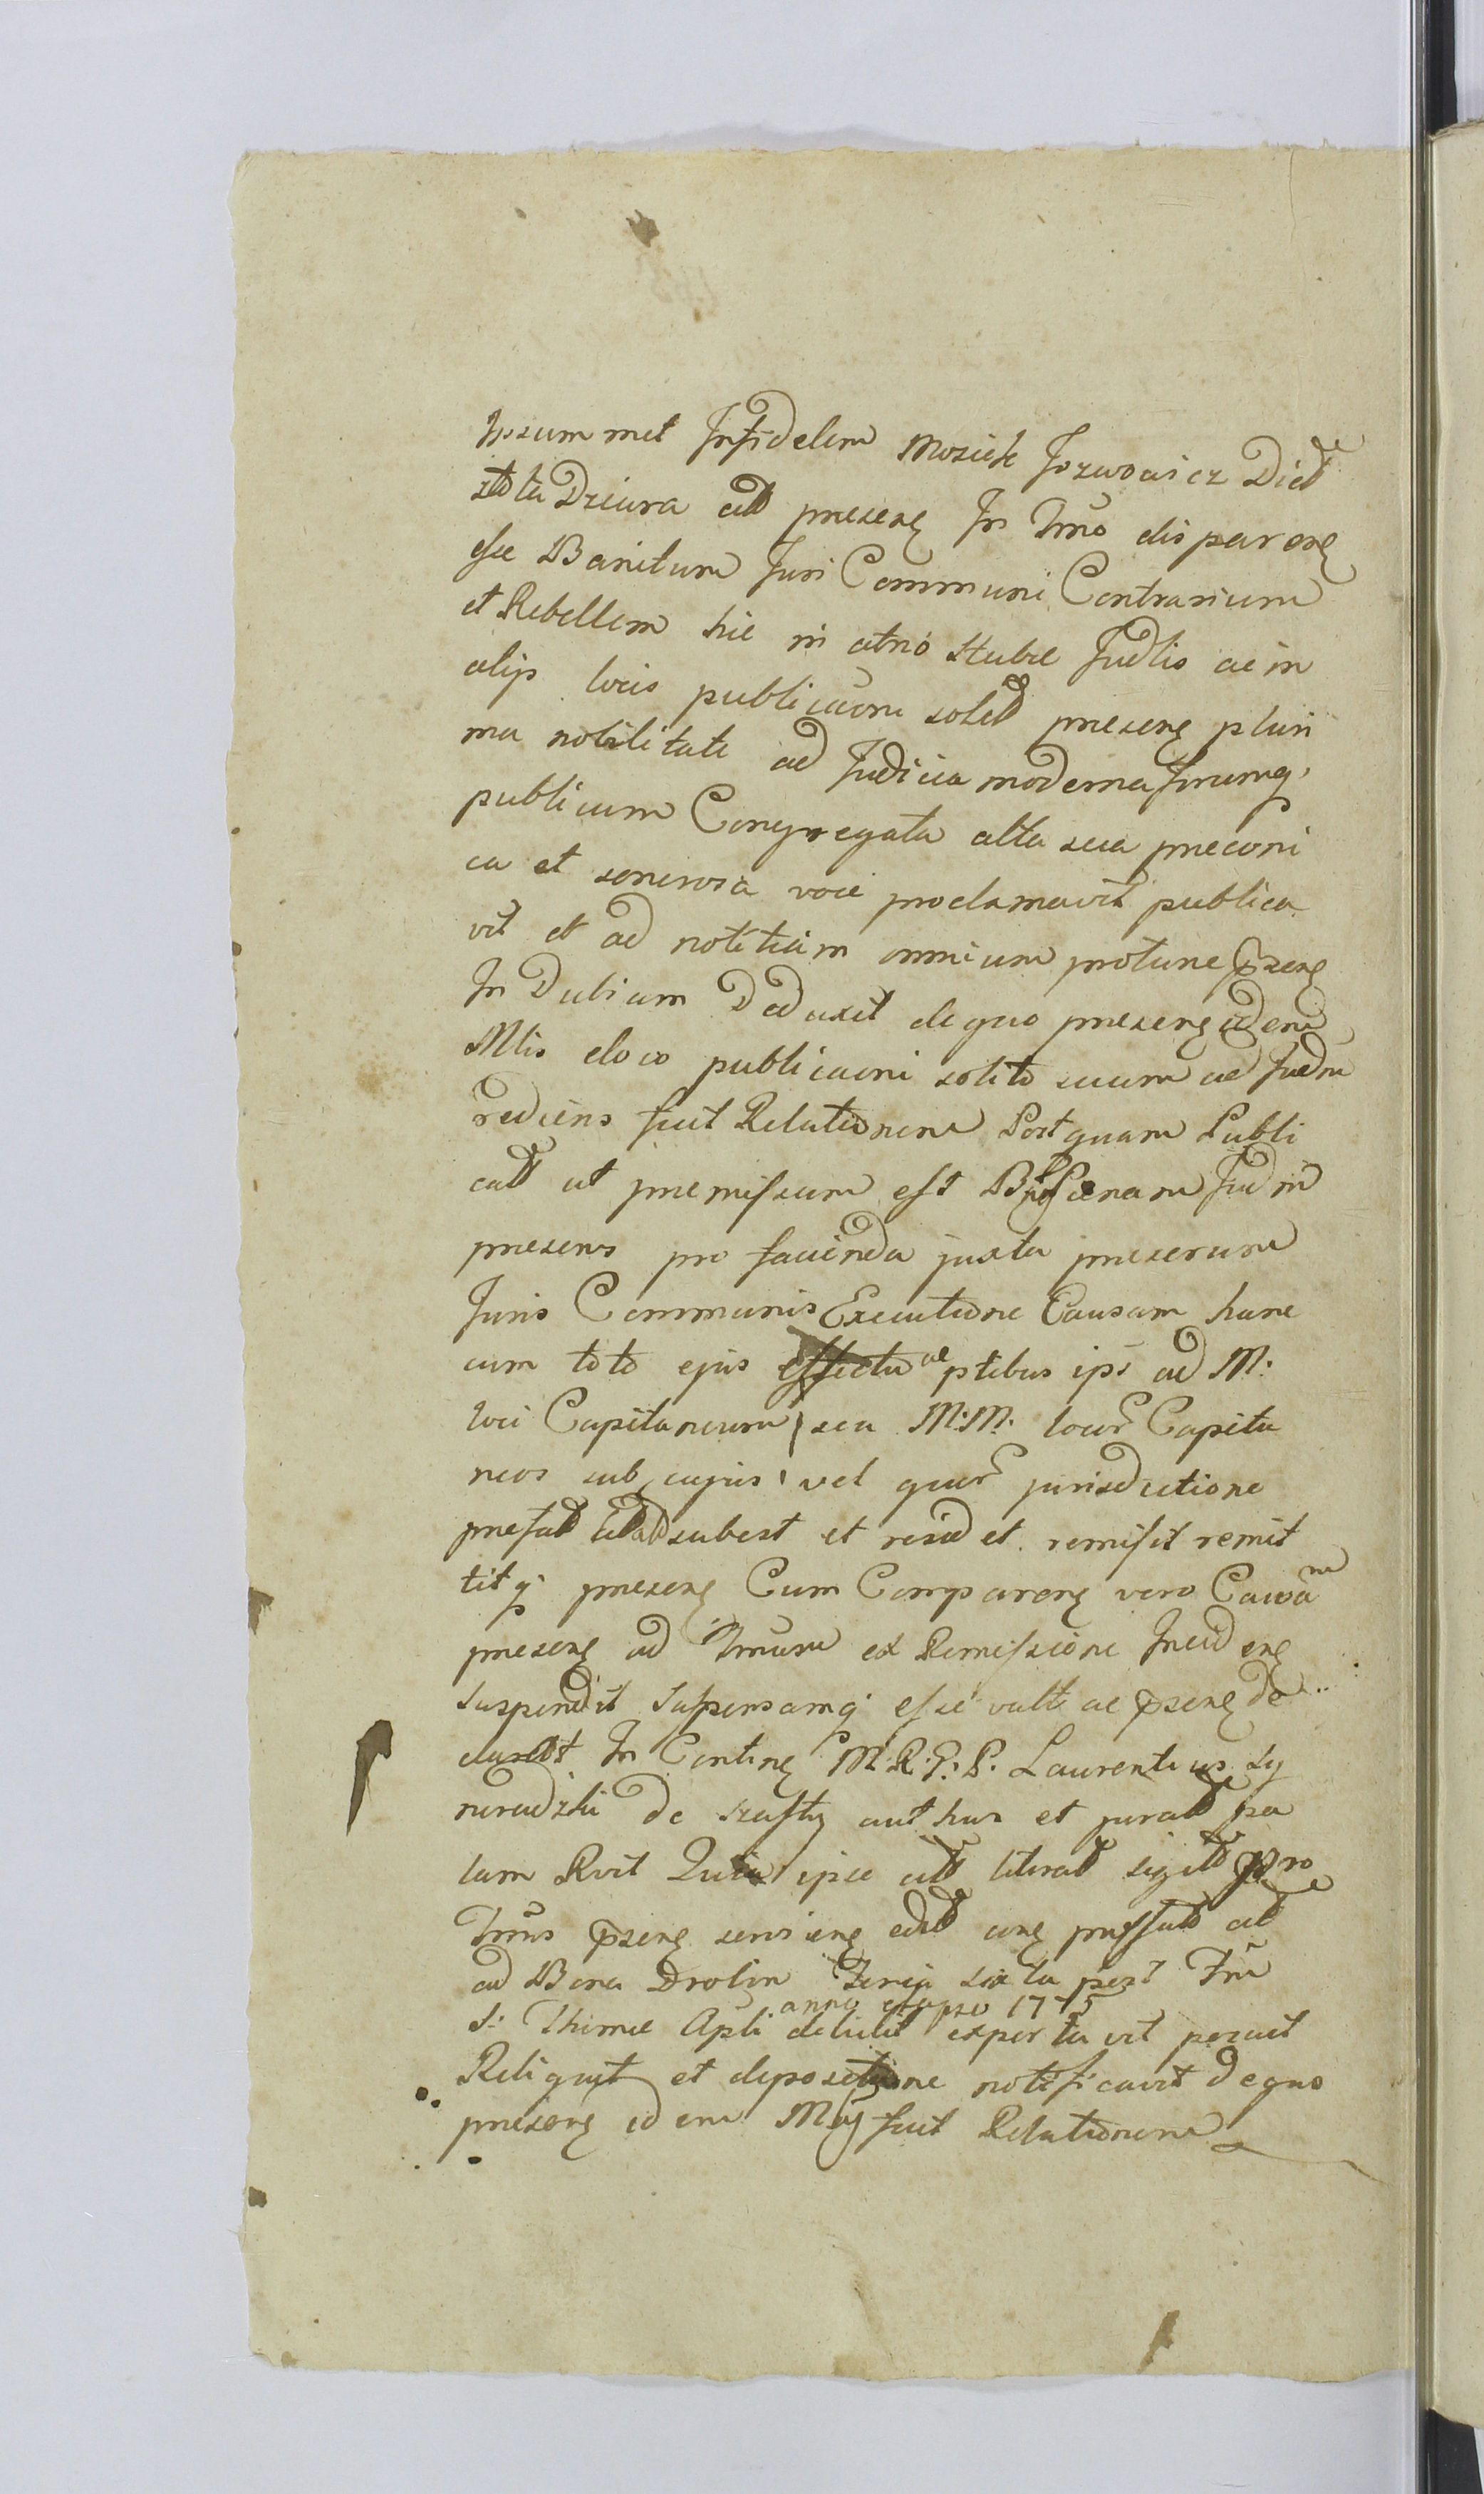 Ipsum met Infidelem Mosiek Jozwowicz Dict
złota Dziura cit presenę In Tmo disparenę
esse Banitum Juri Communi Contrarium
et Rebellem hic in atrio Stubæ Judlis ac in
alijs locis publicaoni solit presenę pluri
ma nobilitate ad Judicia moderna forumq
publicum Congregata alta sua preconi
ca et sonorosa voce proclamavit publica
vit et ad notitiam omnium protunc psenę
In Dubium Deduxit de quo presenę idem
Mlis eloco publicaoni solito suum ad Judm
rediens fecit Relationem Post quam Publi
cat ut premissum est Judm
presens pro facienda juxta presens
Juris Communis Executione Causam hanc
cum toto ejus effectu ac ptibus ipÿ ad M:
loci Capitaneum seu M:M: locor Capita
neos sub cujus vel quor jurisdictione
prefat subest et resid et remisit remit
titq presenę Cum Comparenę vero Causam
presenę ad Tmum ex Remissione Incidenę
suspendit suspensamq esse vult ac psenę de
clarat In Continę M.R.P.P. Laurentius Sy
nirudzki de Szafty authus et jurat pa
lam Rvit Quia ipse cit literat sigilt pro
Tmis psenę servienę edit conę prefat cit
ad Bona Drolin Feria sexta post Fm
S: Thomæ Apli anno elapso 1775 detulit exportavit posuit
Reliquit et depositione notificavit de quo
presenę idem Mlis fecit Relationem